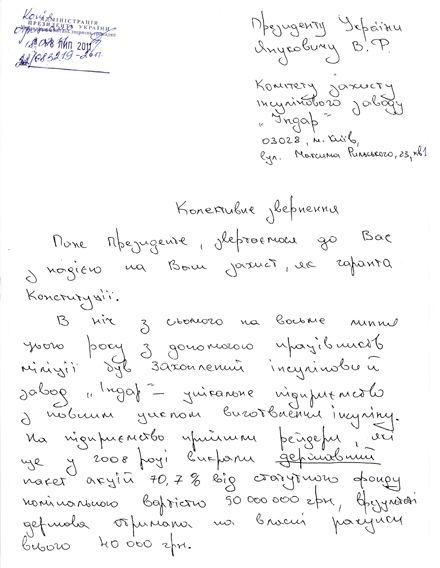 Президенту України
Януковичу В. Ф.
Комітету захисту
інсулінового заводу
„Індар"
03028, м. Київ,
вул. Максима Рильського, 23, кв1
Копія
АДМІНІСТРАЦІЯ
ПРЕЗИДЕНТА УКРАЇНИ
ЛИП 2011
Колективне звернення
Пане Президенте, звертаємося до Вас
з надією на Ваш захист, як гаранта
Конституції.
В ніч з сьомого на восьме липня
цього року з допомогою працівників
міліції був захоплений інсуліновий
завод „Індар" – унікальне підприємство
з повним циклом виготовлення інсуліну.
На підприємство прийшли рейдери, які
ще у 2008 році викрали державний
пакет акцій 70,7% від статутного фонду
номінального вартістю 50 000 000 грн, врезультаті
держава отримала на власні рахунки
всього 40 000 грн.